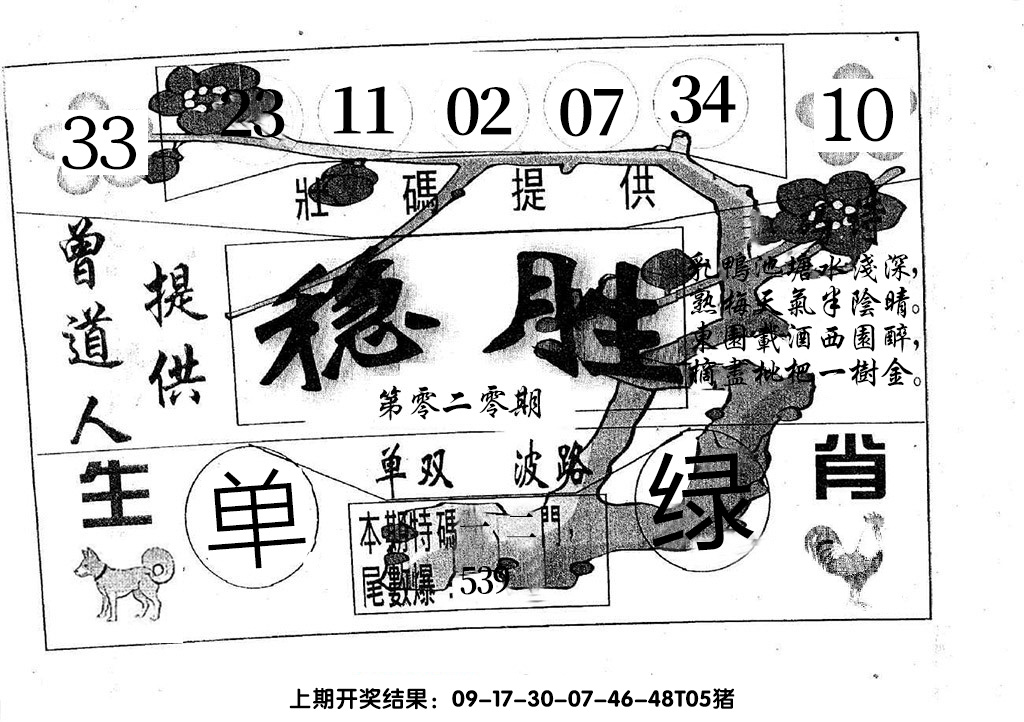 33 23 11 02 07 34 10
壯碼提供
特
曾道人
提供
稳胜
第零二零期
乳鴨池塘水淺深，
熟梅天氣半陰晴。
東園載酒西園醉，
摘盡枇杷一樹金。
单双 波路
生肖
单
绿
本期特碼一、二門，
尾數爆：539
上期开奖结果：09-17-30-07-46-48T05猪